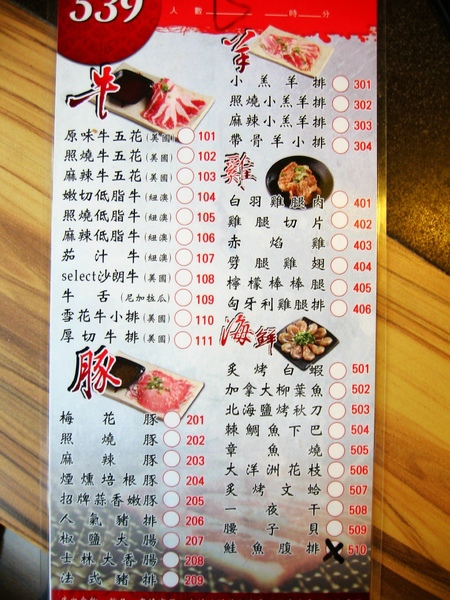 539
人 數 時 分
牛
原味牛五花(美國) 101
照燒牛五花(美國) 102
麻辣牛五花(美國) 103
嫩切低脂牛(紐澳) 104
照燒低脂牛(紐澳) 105
麻辣低脂牛(紐澳) 106
茄汁牛(紐澳) 107
select沙朗牛(美國) 108
牛舌(尼加拉瓜) 109
雪花牛小排(美國) 110
厚切牛排(美國) 111
豚
梅花豚 201
照燒豚 202
麻辣豚 203
煙燻培根豚 204
招牌蒜香嫩豚 205
人氣豬排 206
椒鹽大腸 207
士林大香腸 208
法式豬排 209
羊
小羔羊排 301
照燒小羔羊排 302
麻辣小羔羊排 303
帶骨羊小排 304
雞
白羽雞腿肉 401
雞腿切片 402
赤焰雞 403
劈腿雞翅 404
檸檬棒棒腿 405
匈牙利雞腿排 406
海鮮
炙烤白蝦 501
加拿大柳葉魚 502
北海鹽烤秋刀 503
棘鯛魚下巴 504
章魚燒 505
大洋洲花枝 506
炙烤文蛤 507
一夜干 508
腰子貝 509
鮭魚腹排 510